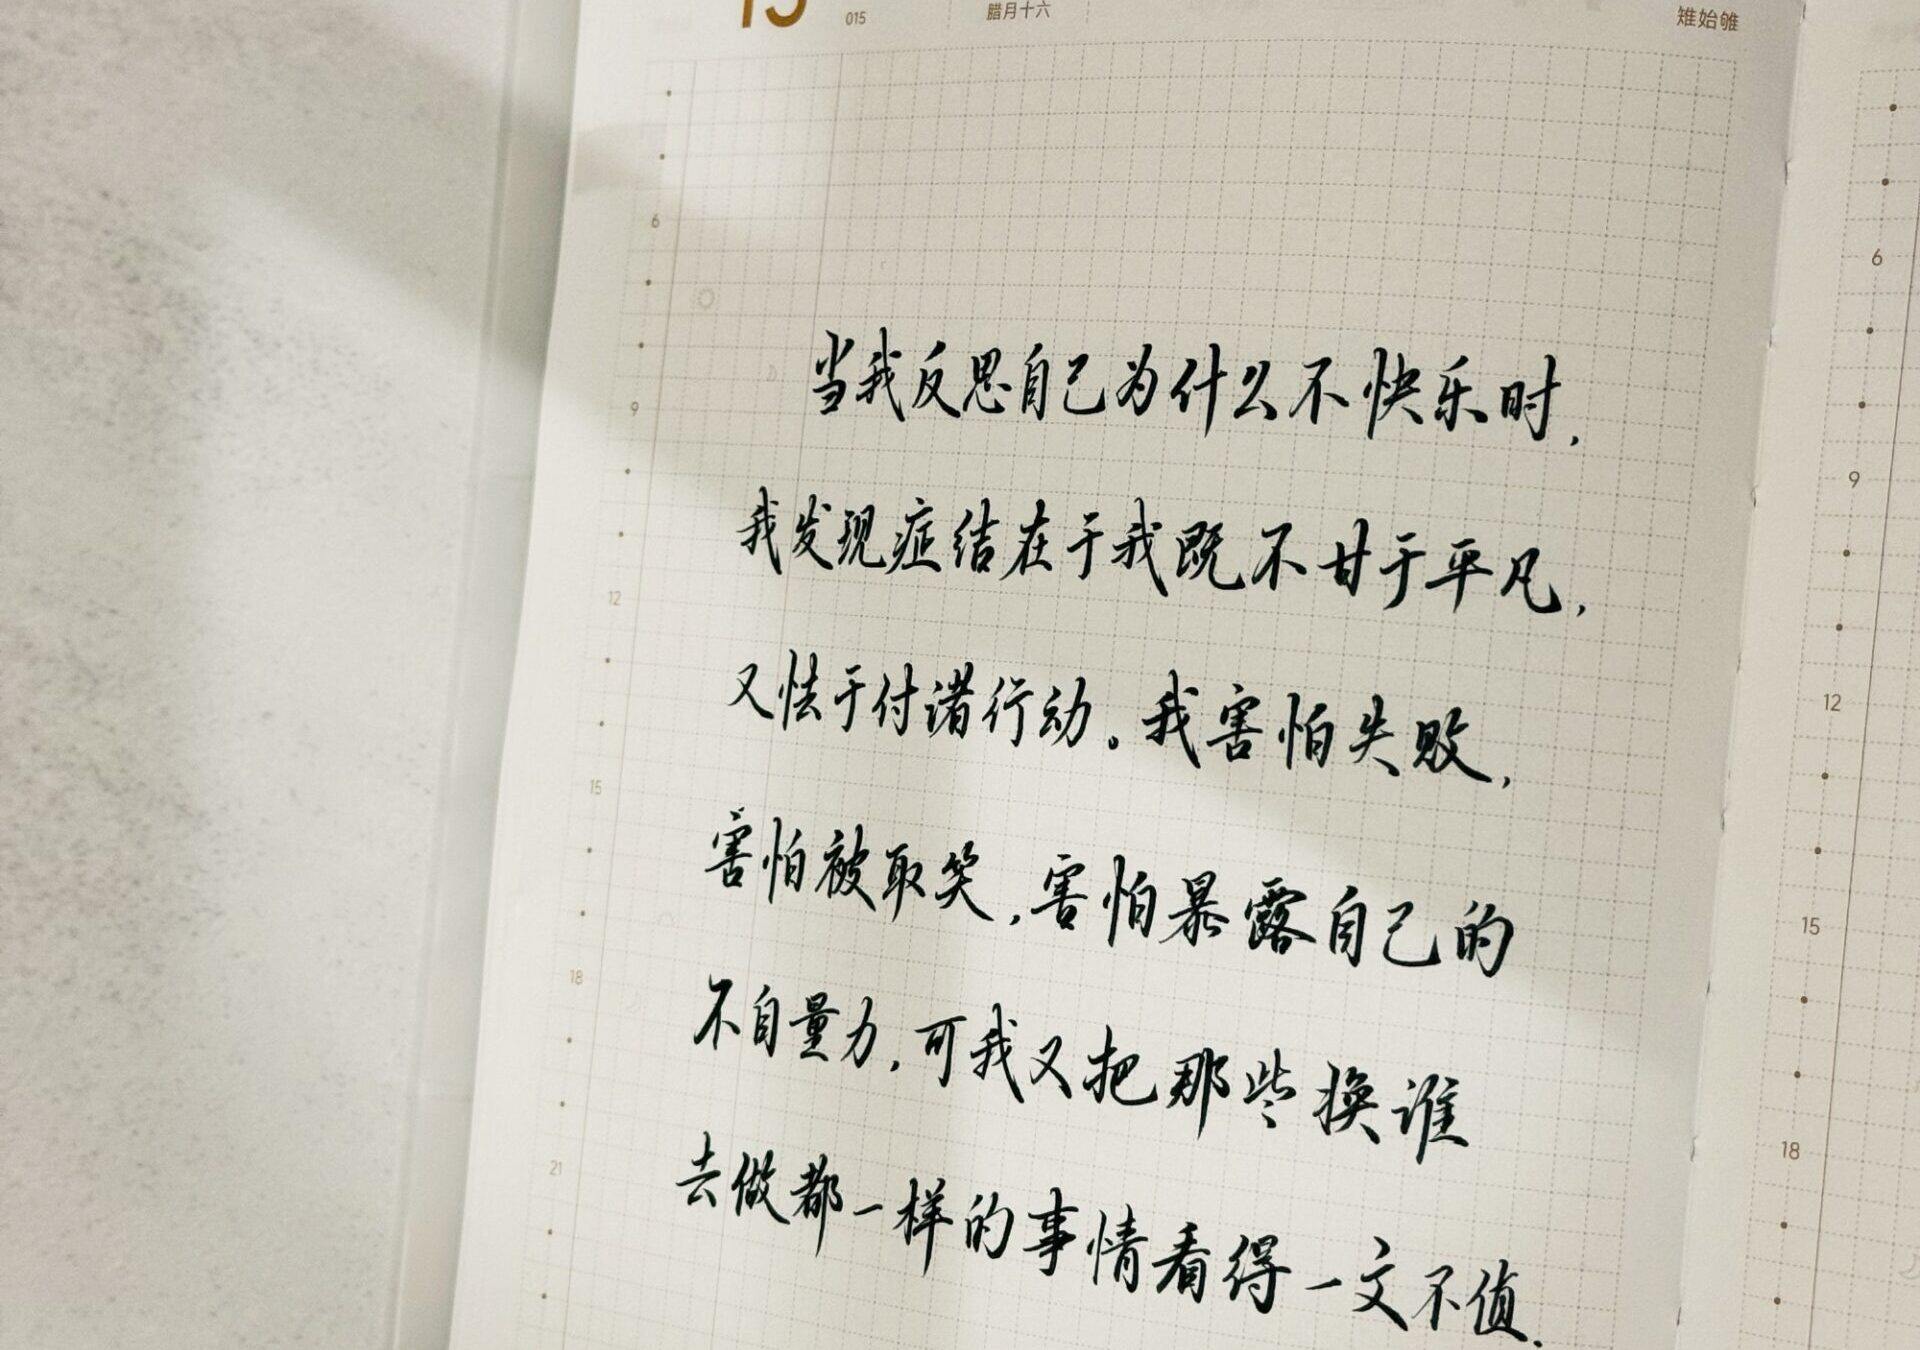 15 015 腊月十六 雉始雊
6
9
12
15
18
21
当我反思自己为什么不快乐时，
我发现症结在于我既不甘于平凡，
又怯于付诸行动。我害怕失败，
害怕被取笑，害怕暴露自己的
不自量力，可我又把那些换谁
去做都一样的事情看得一文不值.
6
9
12
15
18